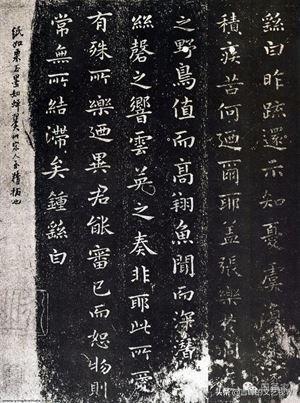 繇白昨疏還示知憂虞復深
積疾苦何迺爾耶蓋張樂於洞
之野鳥值而高翔魚聞而深潛
絲磬之響雲英之奏非耶此所愛
有殊所樂迺異君能審己而恕物則
常無所結滯矣鍾繇白
紙如栗玉墨如蟬翼
头条